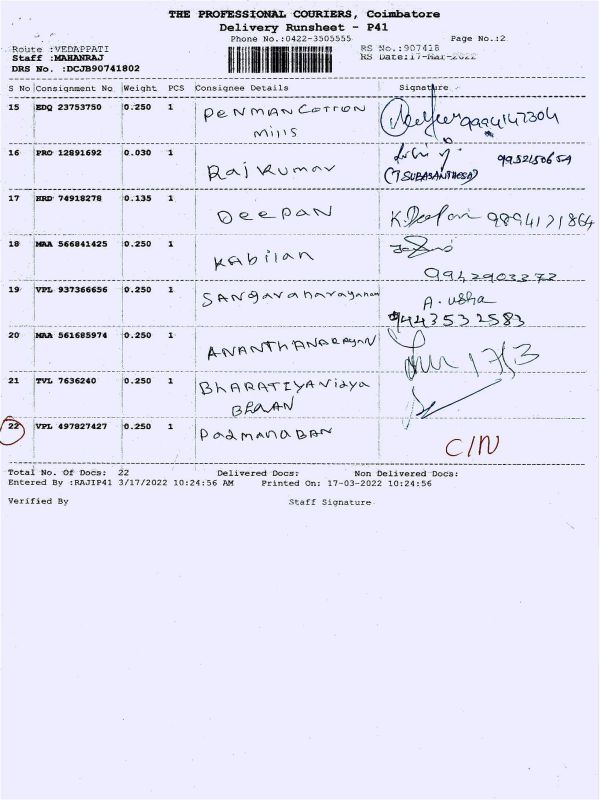 THE PROFESSIONAL COURIERS, Coimbatore
Delivery Runsheet - P41
Phone No.:0422-3505555 Page No.:2
Route :VEDAPPATI RS No.:907418
Staff :MAHANRAJ RS Date:17-Mar-2022
DRS No. :DCJB90741802
S No Consignment No Weight PCS Consignee Details Signature
15 EDQ 23753750 0.250 1 PENMAN COTTON
Mills
16 PRO 12891692 0.030 1 Raj Kumar
(T SUBASANTHESA)
17 HRD 74918278 0.135 1 DEEPAN K. Deepan 9894171864
18 MAA 566841425 0.250 1 Kabilan
9952903372
19 VPL 937366656 0.250 1 SANgaranarayanan A. usha
9443532583
20 MAA 561685974 0.250 1 ANANTHANARAYAN 17/3
21 TVL 7636240 0.250 1 BHARATIYA Vidya
22 VPL 497827427 0.250 1 PADMANABAN C/N
Total No. Of Docs: 22 Delivered Docs: Non Delivered Docs:
Entered By :RAJIP41 3/17/2022 10:24:56 AM Printed On: 17-03-2022 10:24:56
Verified By Staff Signature